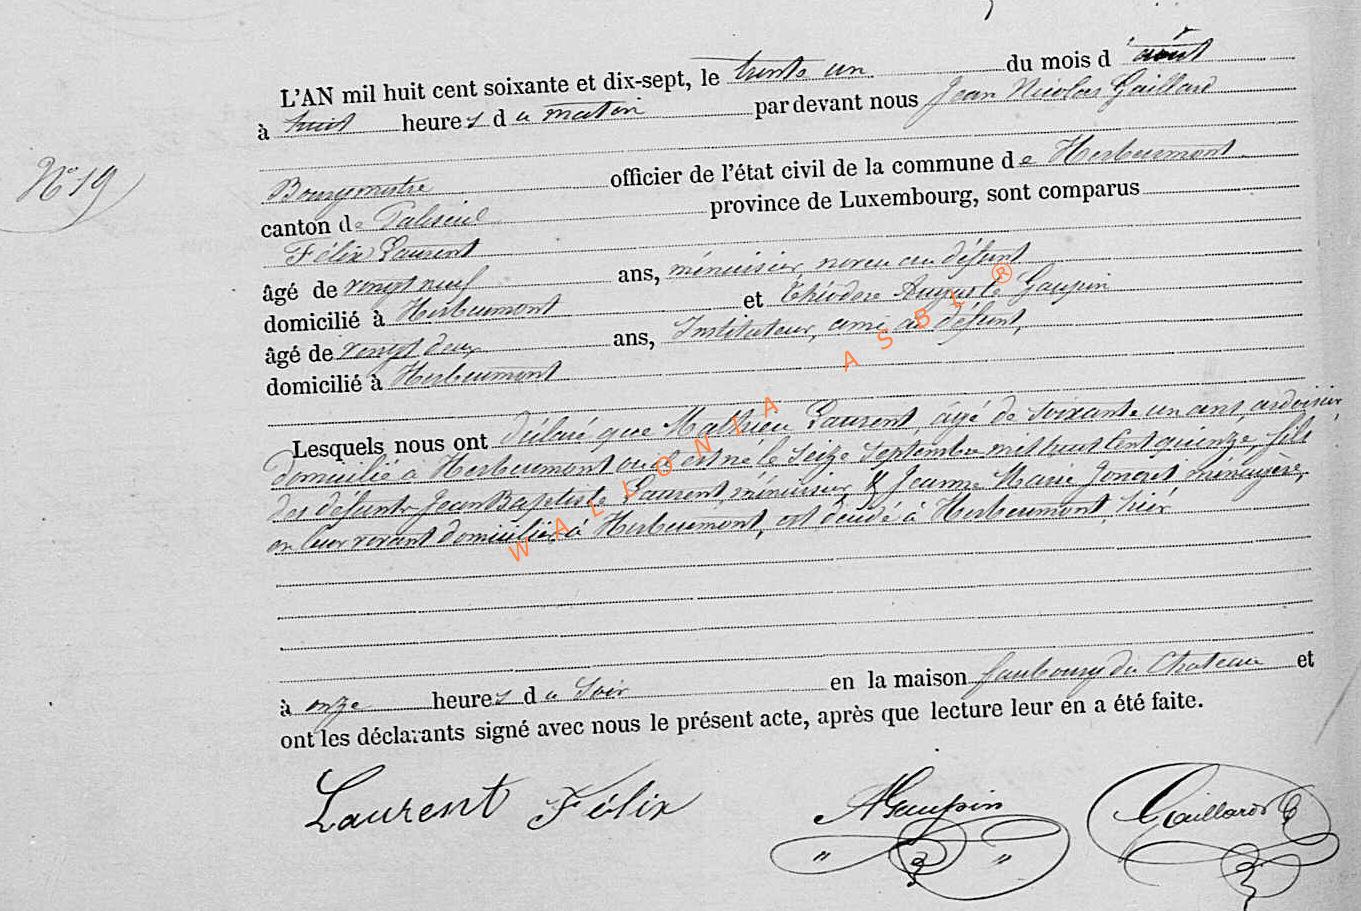 L'AN mil huit cent soixante et dix-sept, le trente un du mois d'août
à huit heures du matin par devant nous Jean Nicolas Gaillard
N° 19
Bourgmestre officier de l'état civil de la commune de Herbeumont
canton de Paliseul province de Luxembourg, sont comparus
Félix Laurent
âgé de vingt neuf ans, menuisier, neveu au défunt
domicilié à Herbeumont et Théodore Auguste Gaupin
âgé de vingt deux ans, Instituteur, ami au défunt,
domicilié à Herbeumont
Lesquels nous ont déclaré que Mathieu Laurent, âgé de soixante un ans, ardoisier,
domicilié à Herbeumont où il est né le seize septembre mil huit cent quinze, fils
des défunts Jean Baptiste Laurent, menuisier, & Jeanne Marie ménagère,
en leur vivant domiciliés à Herbeumont, est décédé à Herbeumont, hier
à onze heures du soir en la maison faubourg du Chateau et
ont les déclarants signé avec nous le présent acte, après que lecture leur en a été faite.
Laurent Félix AGaupin Gaillard
WALLONIA ASBL ®